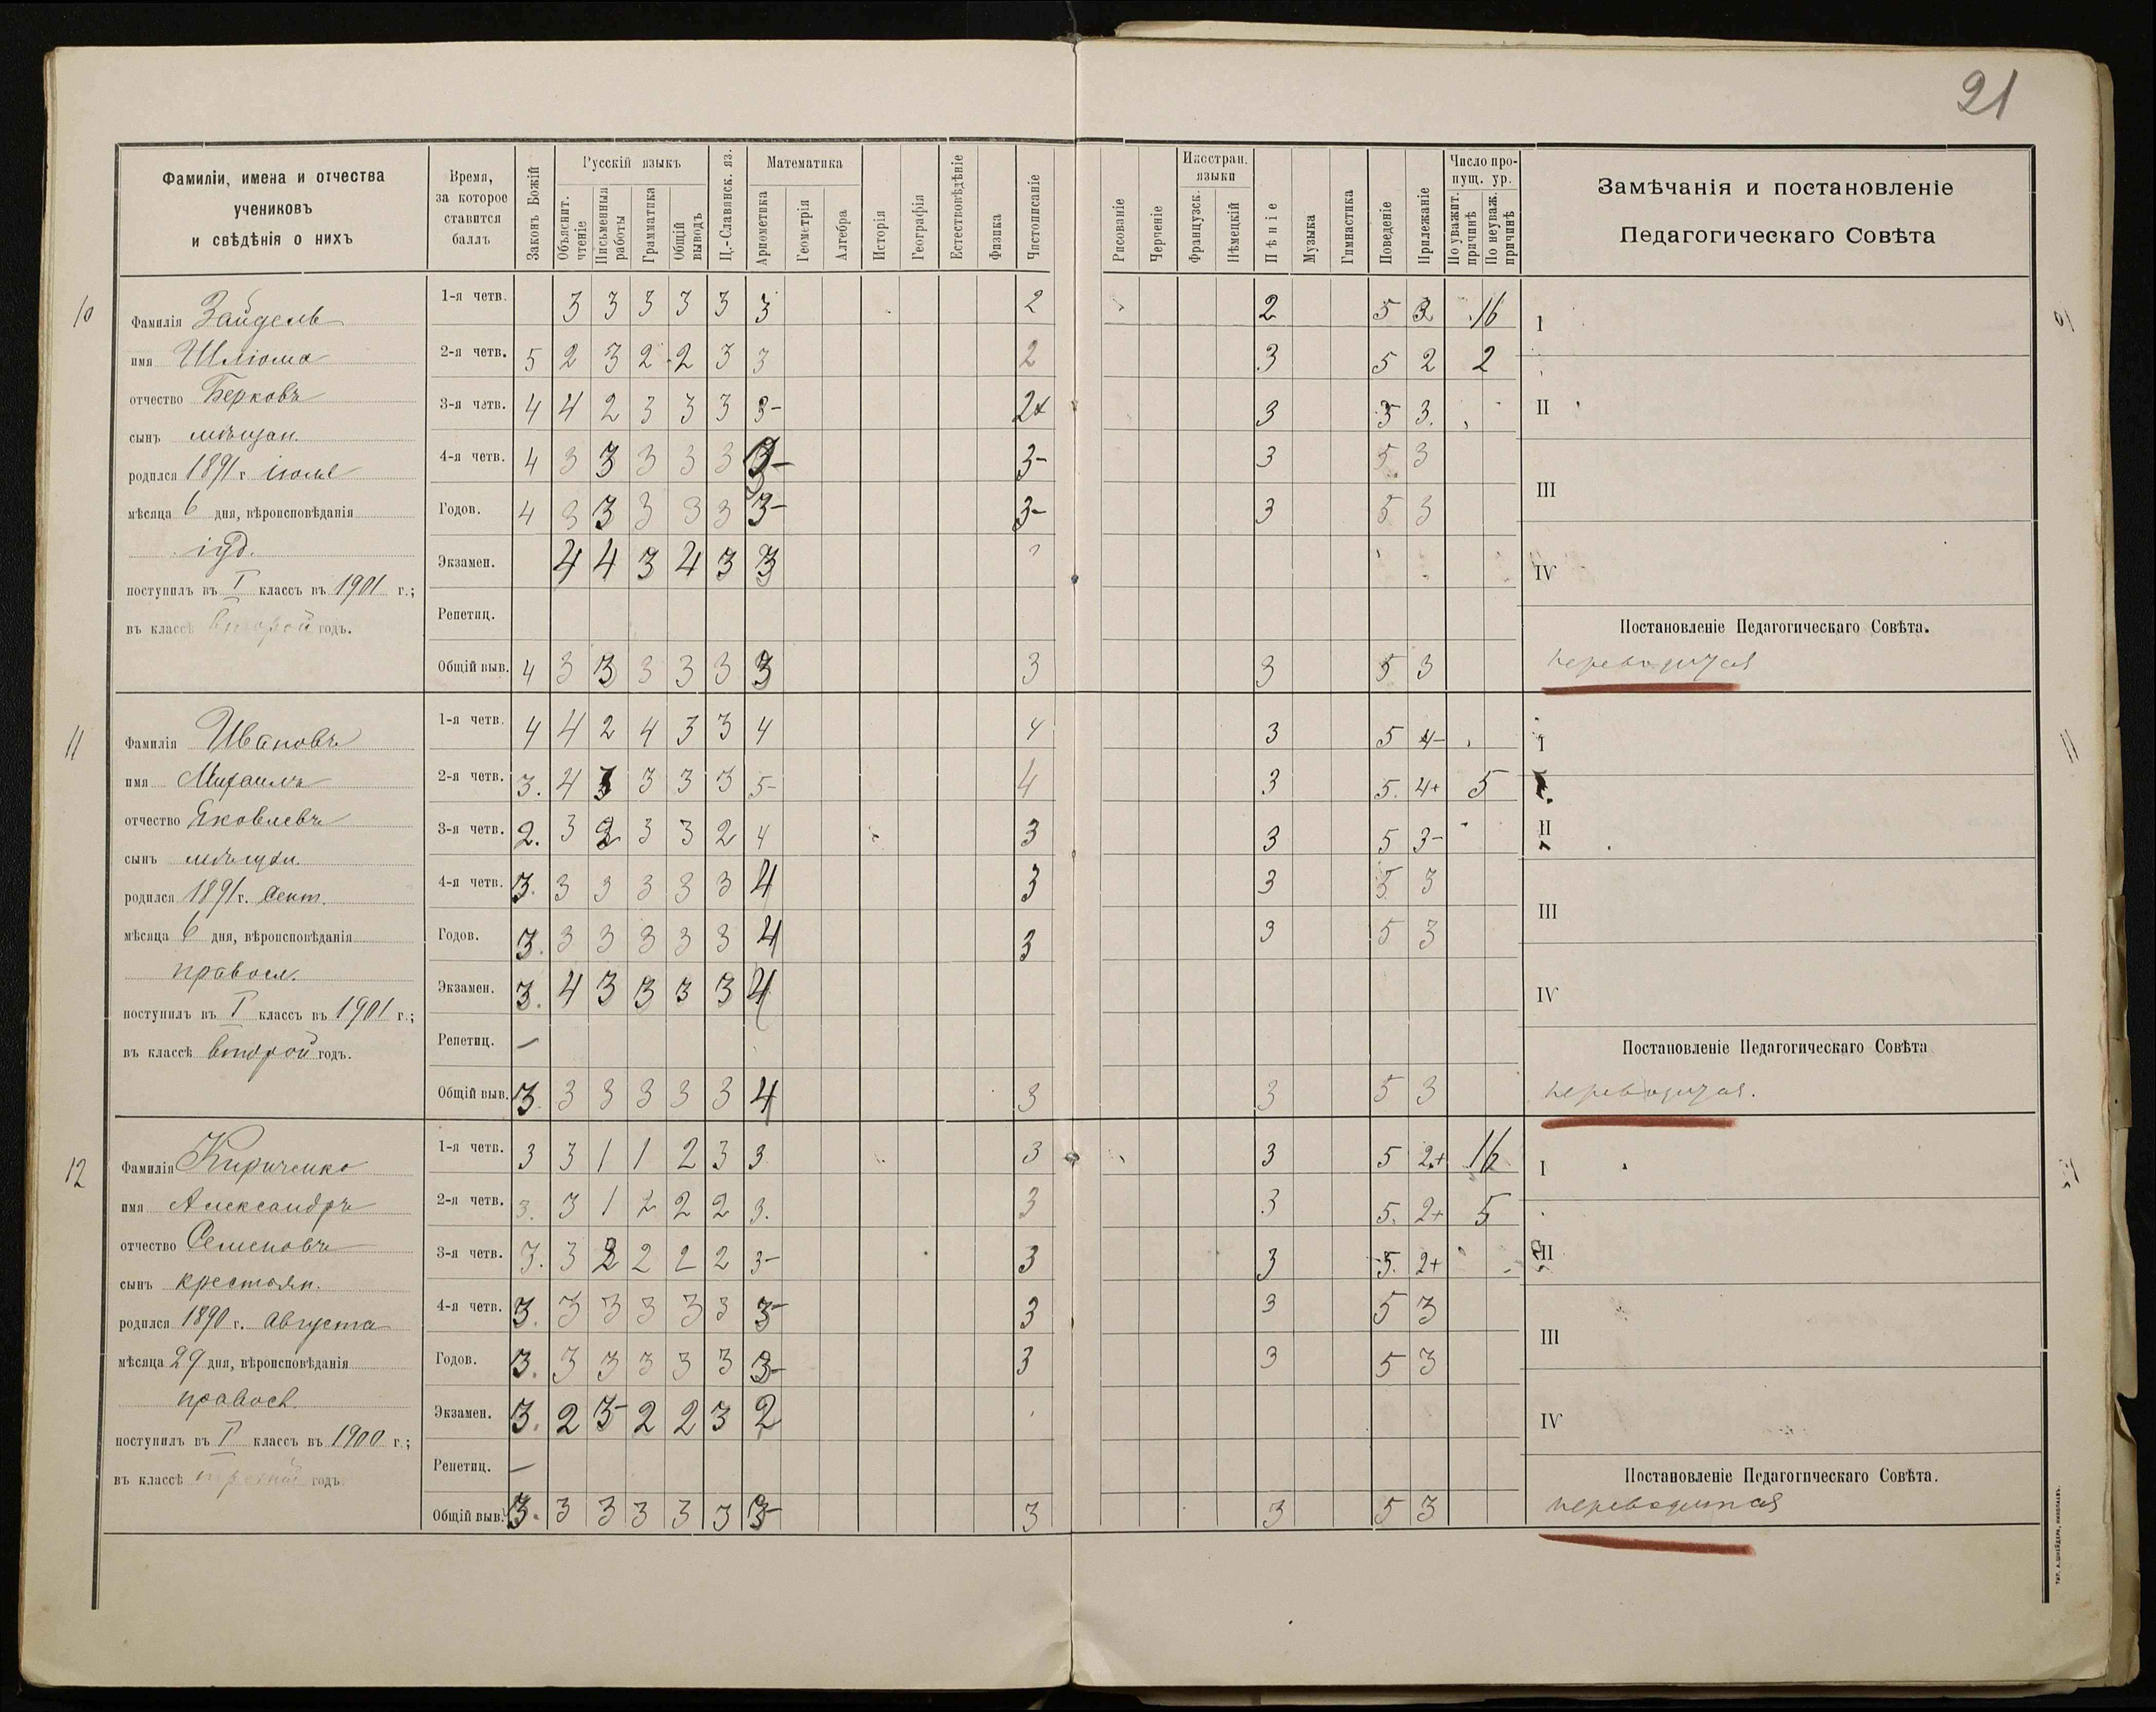 21
Фамиліи, имена и отчества
учениковъ
и свѣдѣнія о нихъ
Время,
за которое
ставится
баллъ
Законъ Божій
Русскій языкъ
Объяснит. чтеніе
Письменныя работы
Грамматика
Общій выводъ
Ц.-Славянск. яз.
Математика
Ариѳметика
Геометрія
Алгебра
Исторія
Географія
Естествовѣдѣніе
Физика
Чистописаніе
Рисованіе
Черченіе
Иностран. языки
Французск.
Нѣмецкій
Пѣніе
Музыка
Гимнастика
Поведеніе
Прилежаніе
Число пропущ. ур.
По уважит. причинѣ
По неуваж. причинѣ
Замѣчанія и постановленіе
Педагогическаго Совѣта
10
Фамилія Зайдель
имя Шліома
отчество Берковъ
сынъ мѣщан.
родился 1891 г. іюля
мѣсяца 6 дня, вѣроисповѣданія
іуд.
поступилъ въ I классъ въ 1901 г.;
въ классѣ второй годъ.
1-я четв. 3 3 3 3 3 3 2 2 5 3 16
2-я четв. 5 2 3 2 2 3 3 2 3 5 2 2
3-я четв. 4 4 2 3 3 3 3- 2+ 3 5 3.
4-я четв. 4 3 3 3 3 3 3- 3- 3 5 3
Годов. 4 3 3 3 3 3 3- 3- 3 5 3
Экзамен. 4 4 3 4 3 3
Репетиц.
Общій выв. 4 3 3 3 3 3 3 3 3 5 3
I
II
III
IV
Постановленіе Педагогическаго Совѣта.
переводится
11
Фамилія Ивановъ
имя Михаилъ
отчество Яковлевъ
сынъ мѣщан.
родился 1891 г. Сент.
мѣсяца 6 дня, вѣроисповѣданія
правосл.
поступилъ въ I классъ въ 1901 г.;
въ классѣ второй годъ.
1-я четв. 4 4 2 4 3 3 4 4 3 5 4-
2-я четв. 3. 4 3 3 3 3 5- 4 3 5. 4+ 5
3-я четв. 2. 3 2 3 3 2 4 3 3 5 3-
4-я четв. 3. 3 3 3 3 3 4 3 3 5 3
Годов. 3. 3 3 3 3 3 4 3 3 5 3
Экзамен. 3. 4 3 3 3 3 4
Репетиц. —
Общій выв. 3 3 3 3 3 3 4 3 3 5 3
I
II
III
IV
Постановленіе Педагогическаго Совѣта
переводится.
11
12
Фамилія Кириченко
имя Александръ
отчество Семеновъ
сынъ крестьян.
родился 1890 г. Августа
мѣсяца 29 дня, вѣроисповѣданія
правосл.
поступилъ въ I классъ въ 1900 г.;
въ классѣ третій годъ.
1-я четв. 3 3 1 1 2 3 3 3 3 5 2+ 16
2-я четв. 3. 3 1 2 2 2 3. 3 3 5. 2+ 5
3-я четв. 3. 3 2 2 2 2 3- 3 3 5. 2+
4-я четв. 3. 3 3 3 3 3 3- 3 3 5 3
Годов. 3. 3 3 3 3 3 3- 3 3 5 3
Экзамен. 3. 2 3- 2 2 3 2
Репетиц. —
Общій выв. 3. 3 3 3 3 3 3- 3 3 5 3
I
II
III
IV
Постановленіе Педагогическаго Совѣта.
переводится
ТИП. А. ШНЕЙДЕРА, НИКОЛАЕВЪ.